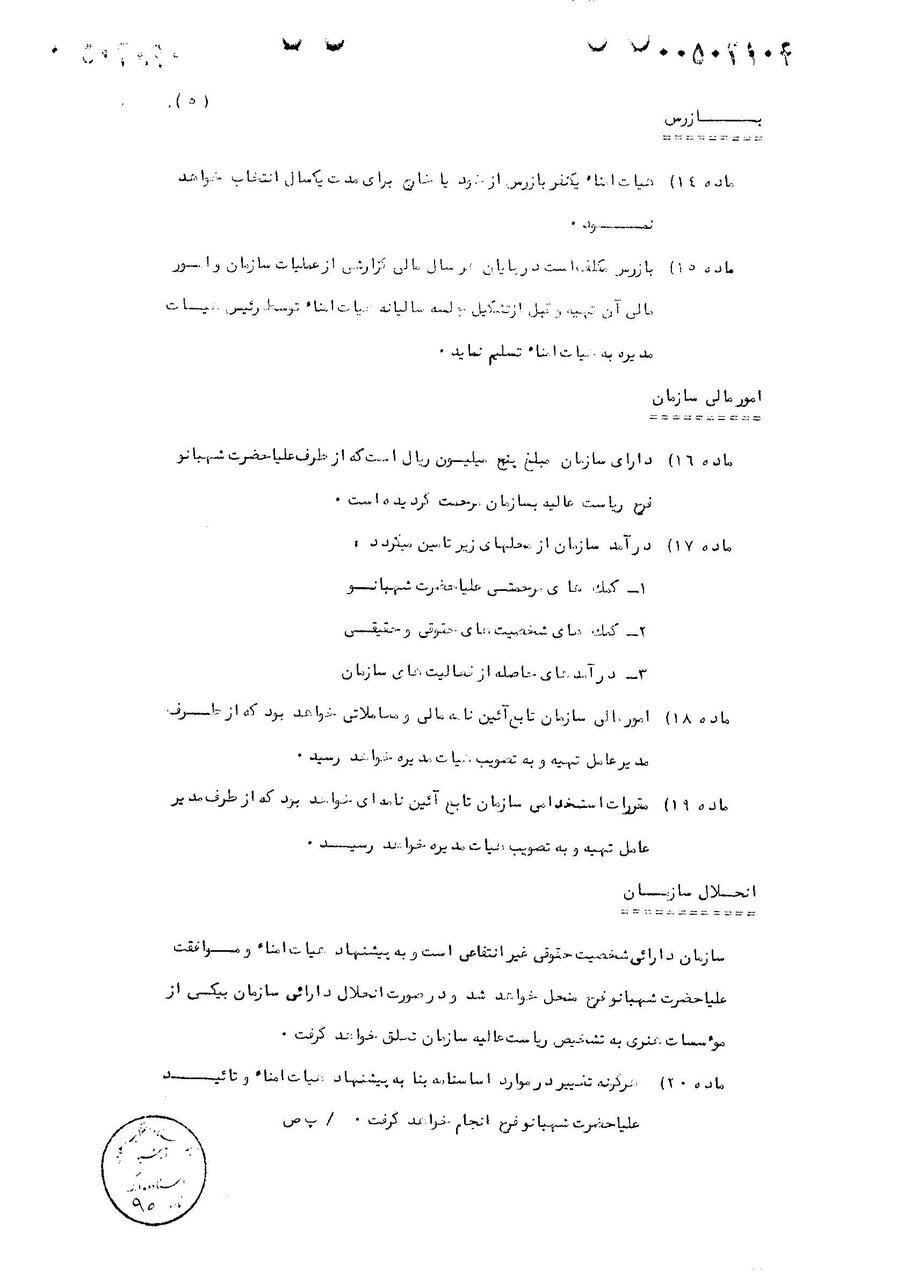 (٥)
بـــازرس
ماده ١٤) هیات امناء یکنفر بازرس از خود یا خارج برای مدت یکسال انتخاب خواهد
نمـــود ٠
ماده ١٥) بازرس مکلف است در پایان هر سال مالی گزارشی از عملیات سازمان و امور
مالی آن تهیه و قبل از تشکیل جلسه سالیانه هیات امناء توسط رئیس هیـــات
مدیره به هیات امناء تسلیم نماید ٠
امور مالی سازمان
ماده ١٦) دارای سازمان مبلغ پنج میلیـون ریال است که از طرف علیاحضرت شهبانو
فرح ریاست عالیه بسازمان مرحمت گردیده است ٠
ماده ١٧) درآمد سازمان از محلهای زیر تامین میگردد :
١ـ کمک های مرحمتـی علیاحضرت شهبانـــو
٢ـ کمک های شخصیت های حقوقی و حقیقـــی
٣ـ درآمد های حاصله از فعالیت های سازمان
ماده ١٨) امور مالی سازمان تابع آئین نامه مالی و معاملاتی خواهد بود که از طـــرف
مدیر عامل تهیه و به تصویب هیات مدیره خواهد رسید ٠
ماده ١٩) مقررات استخدامی سازمان تابع آئین نامه ای خواهد بود که از طرف مدیر
عامل تهیه و به تصویب هیات مدیره خواهد رسیـــد ٠
انحـلال سازمـــان
سازمان دارائی شخصیت حقوقی غیر انتفاعی است و به پیشنهاد هیات امناء و مـــوافقت
علیاحضرت شهبانو فرح منحل خواهد شد و در صورت انحلال دارائی سازمان بیکـی از
مؤسسات هنری به تشخیص ریاست عالیه سازمان تعلق خواهد گرفت ٠
ماده ٢٠) هرگونه تغییر در موارد اساسنامه بنا به پیشنهاد هیات امناء و تائیـــد
علیاحضرت شهبانو فرح انجام خواهد گرفت ٠ / پ ص
اسناد و مدارک
٩٥